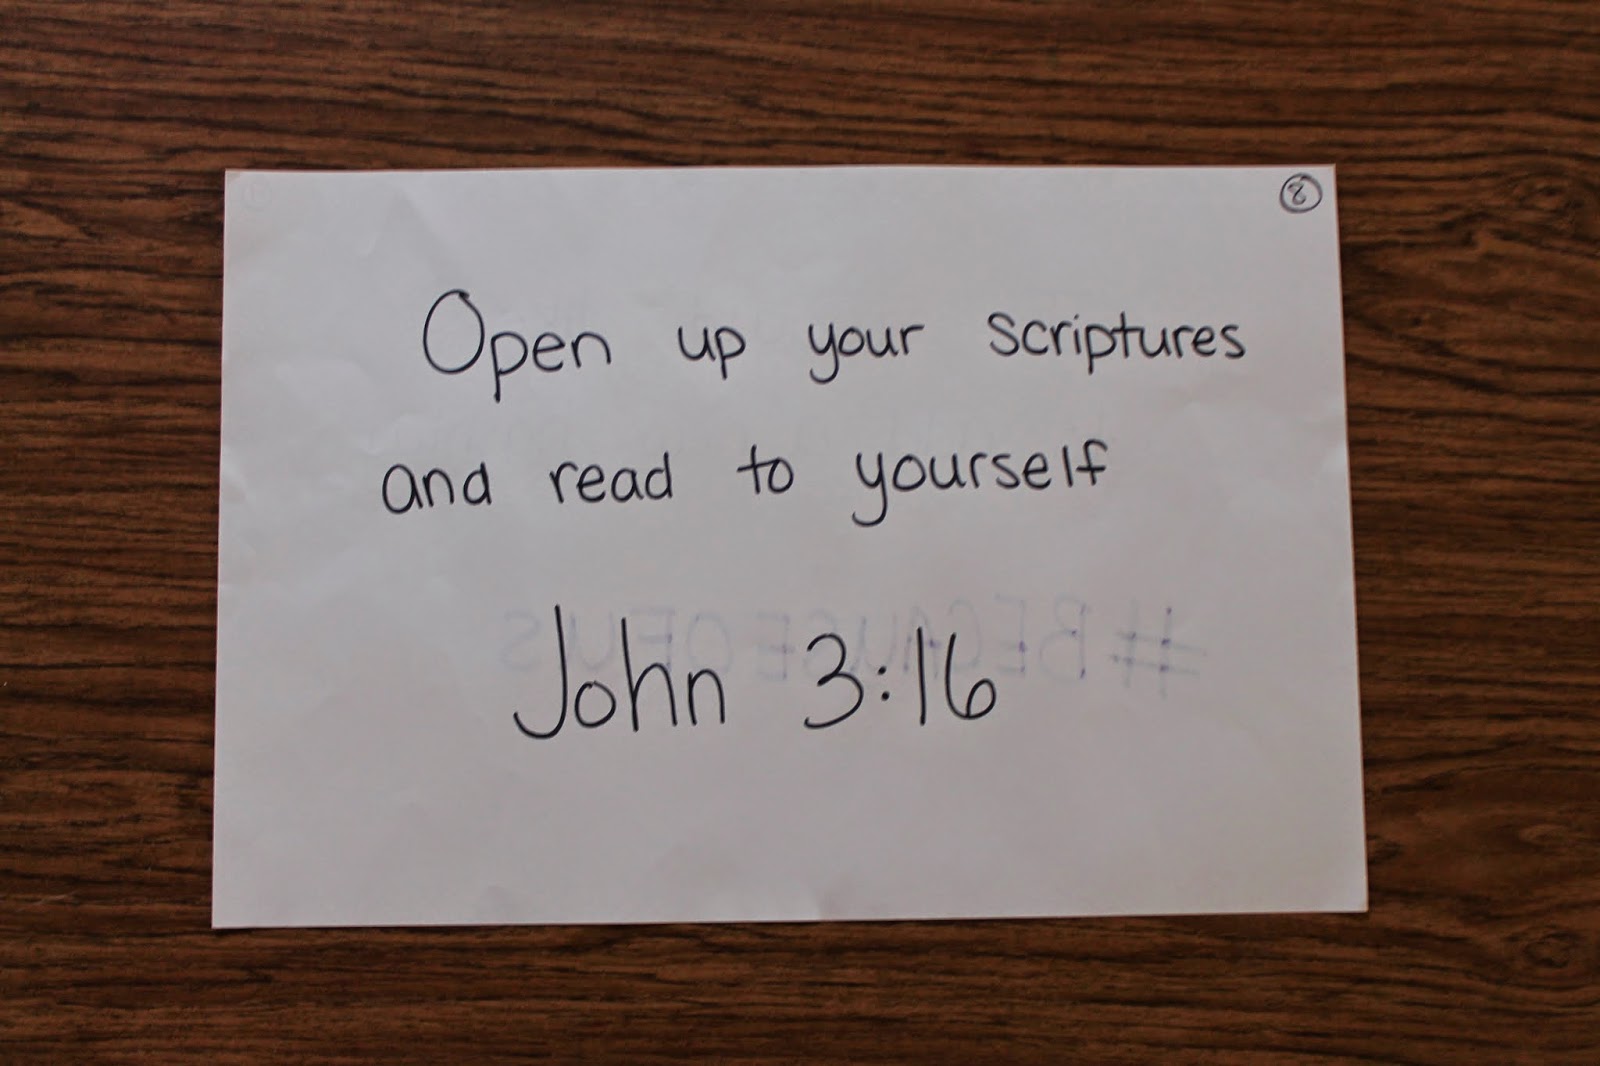 8
Open up your scriptures
and read to yourself
John 3:16
#BECAUSEOFUS